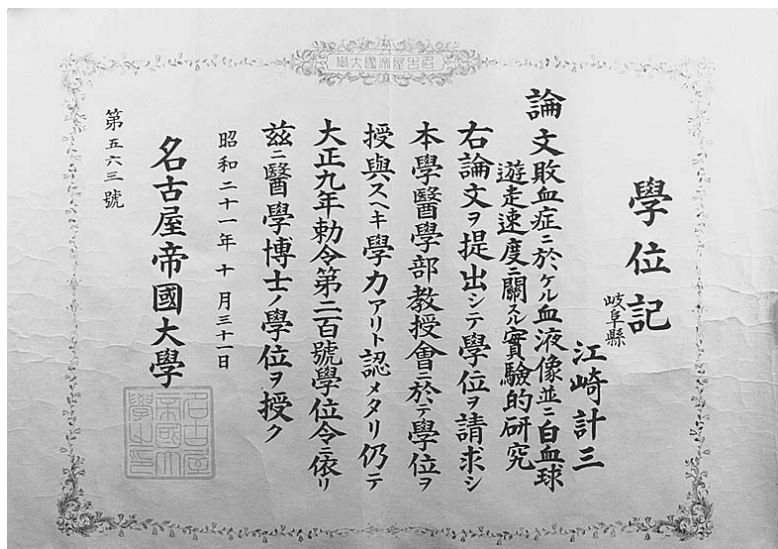 名古屋帝國大學
學位記
岐阜縣
江崎計三
論文敗血症ニ於ケル血液像並ニ白血球
遊走速度ニ關スル實驗的研究
右論文ヲ提出シテ學位ヲ請求シ
本學醫學部教授會ニ於テ學位ヲ
授與スヘキ學力アリト認メタリ仍テ
大正九年勅令第二百號學位令ニ依リ
茲ニ醫學博士ノ學位ヲ授ク
昭和二十一年十月三十一日
名古屋帝國大學
名古屋帝國大學之印
第五六三號